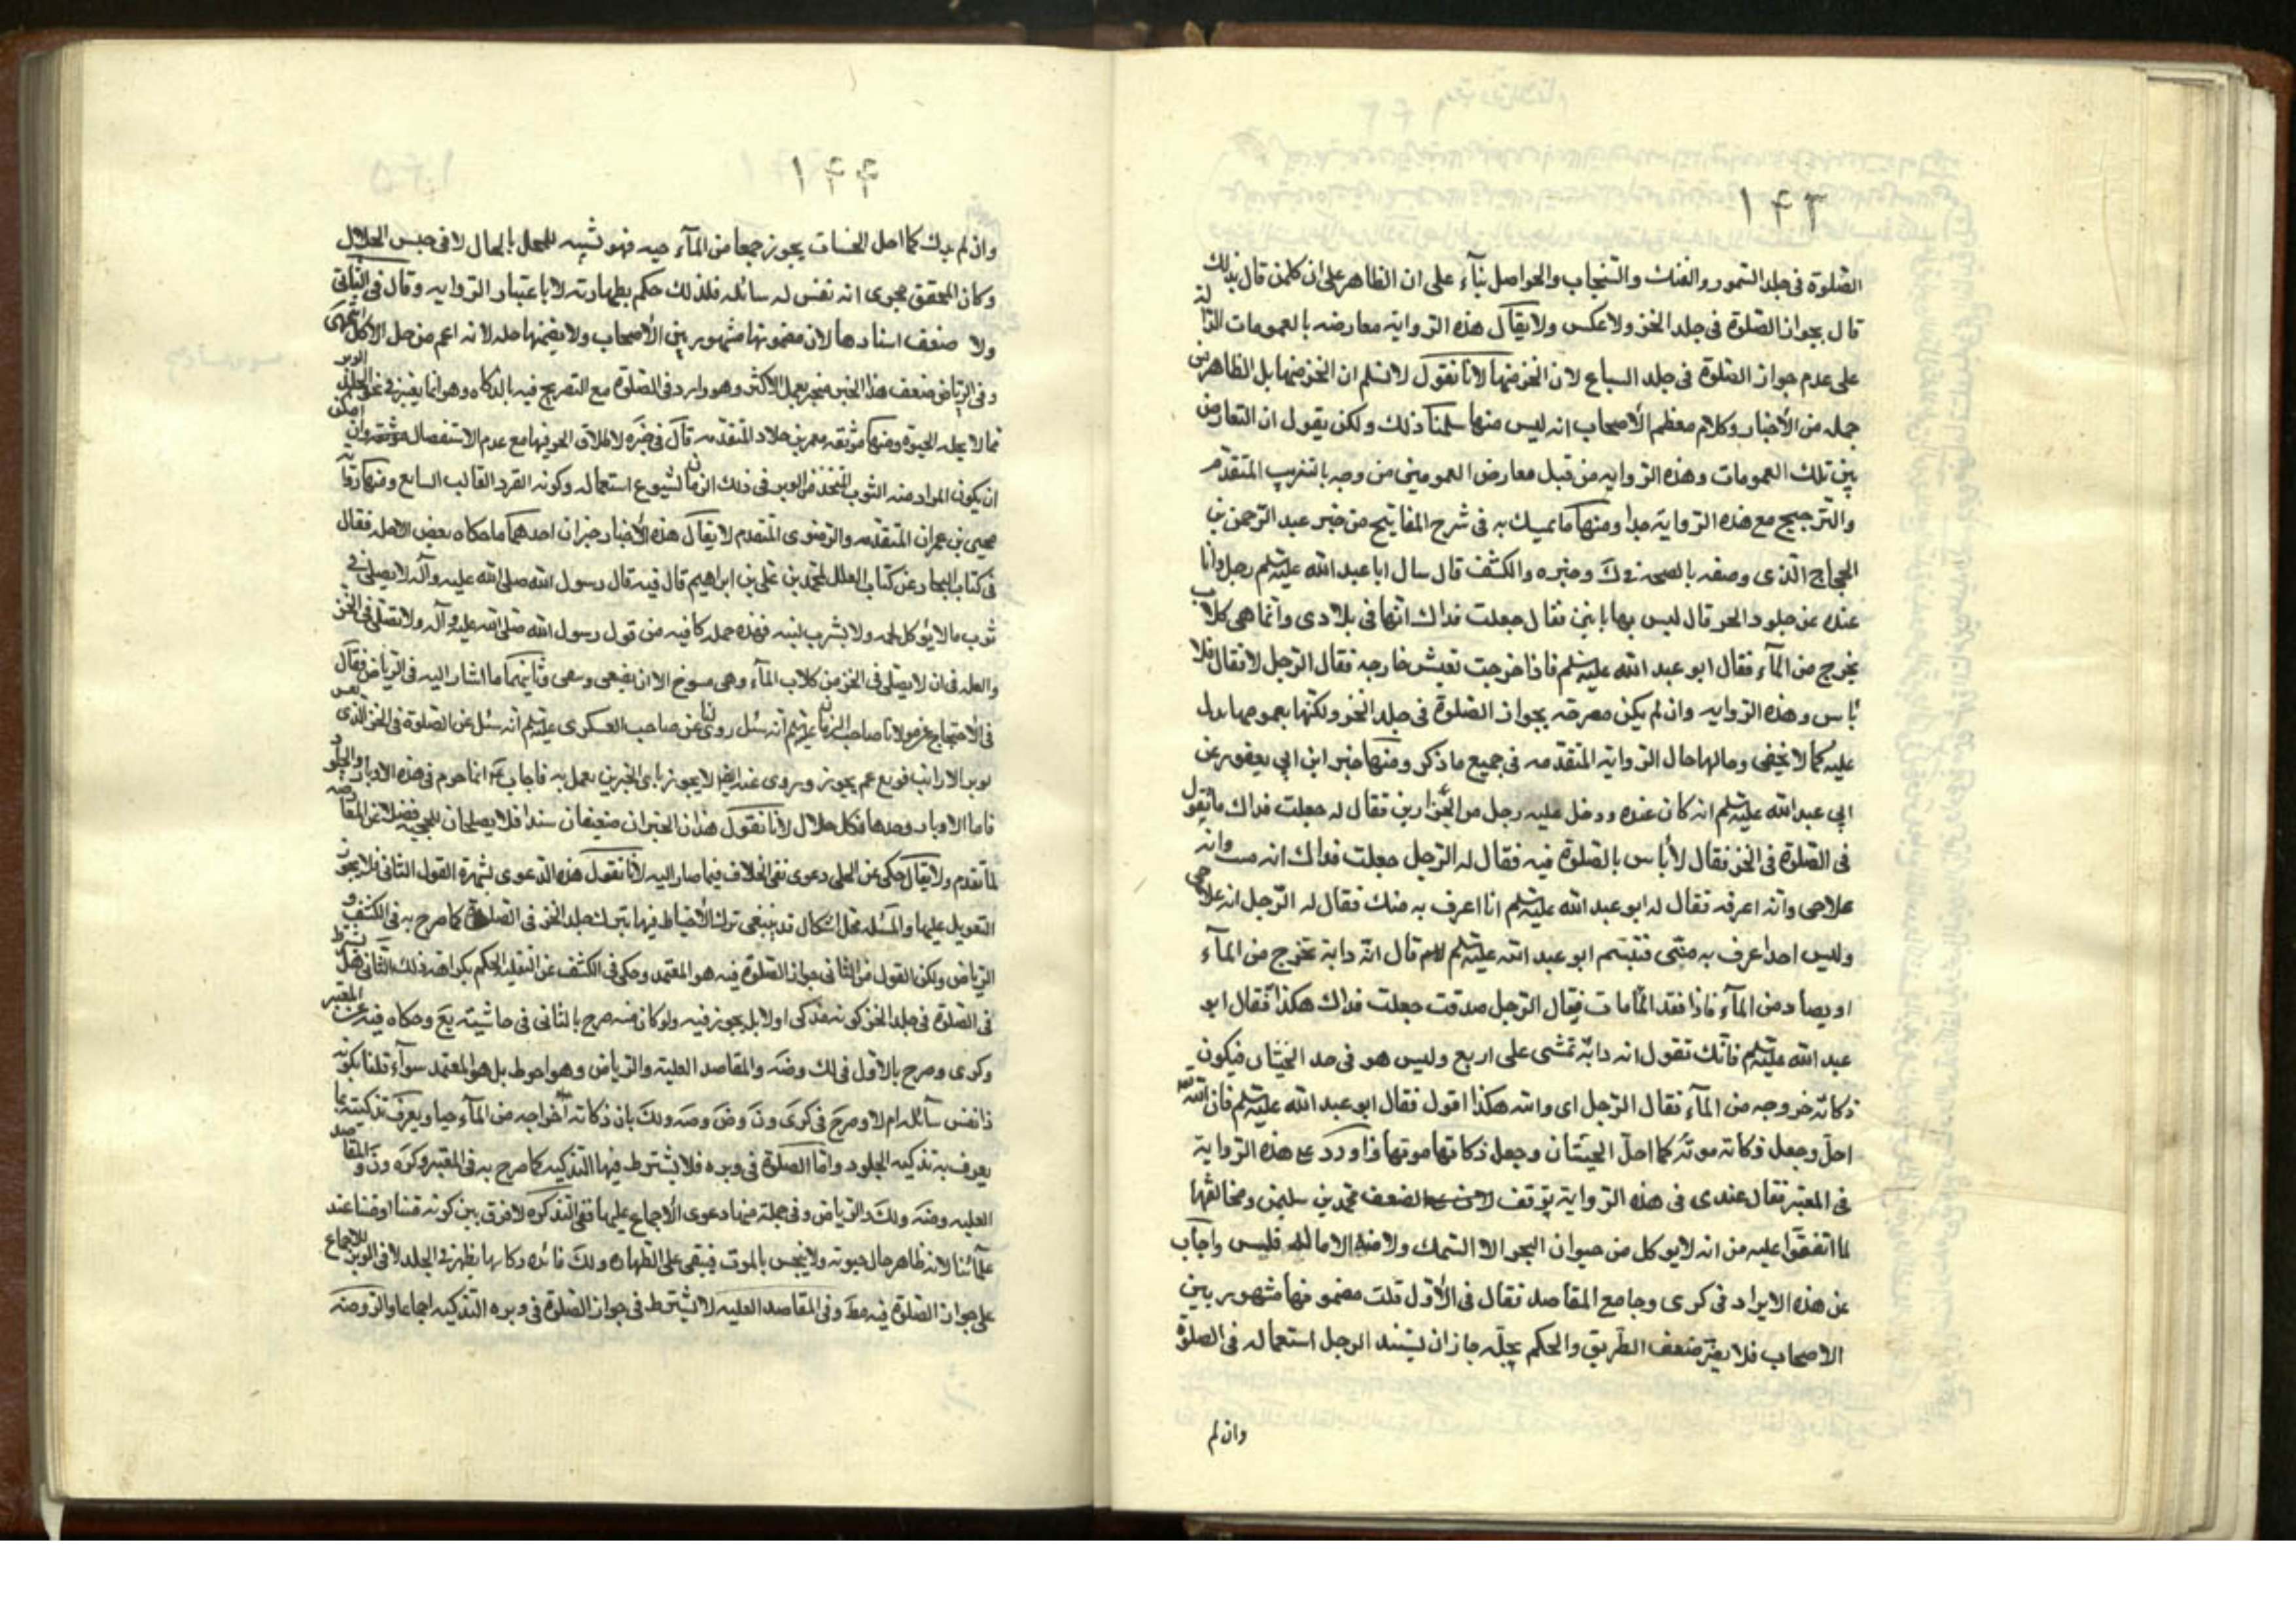 ١۴٣
الصّلوة فى جلد السّمور والفنك والسّنجاب والحواصل بنآء على ان الظاهر على ان كلمن قال بذلك
قال بجواز الصّلوة فى جلد الخز ولا عكس ولا يقال هذه الرّواية معارضه بالعمومات الدّالة
على عدم جواز الصّلوة فى جلد السباع لان الخز منها لانا نقول لانسلم ان الخز منها بل الظاهر من
جمله من الأخبار وكلام معظم الأصحاب انه ليس منها سلمنا ذلك ولكن يقول ان التعارض
بين تلك العمومات وهذه الرّوايه من قبل معارض العمومين من وجه بالتقريب المتقدّم
والتّرجيح مع هذه الرّواية جدا ومنها ما تمسك به فى شرح المفاتيح من خبر عبد الرّحمن بن
الحجاج الّذى وصفه بالصحة فى ك وغيره والكشف قال سال ابا عبد الله عليه‌السّلم رجل وانا
عنده عن جلود الخز قال ليس بها باس فقال جعلت فداك انّها فى بلادى وانّما هى كلاب
يخرج من المآء فقال ابو عبد الله عليه‌السّلم فاذا خرجت تعيش خارجه فقال الرّجل لا فقال فلا
باس وهذه الرّوايه وان لم يكن مصرحه بجواز الصّلوة فى جلد الخز ولكنّها بعمومها يدل
عليه كما لا يخفى وحالها حال الرّواية المتقدّمه فى جميع ما ذكر ومنها خبر ابن ابي يعفور عن
ابي عبد الله عليه‌السّلم انه كان عنده ودخل عليه رجل من الخزازين فقال له جعلت فداك ما تقول
فى الصّلوة فى الخز فقال لأباس بالصّلوة فيه فقال له الرّجل جعلت فداك انه ميت وانه
علاجى وانه اعرفه فقال له ابو عبد الله عليه‌السّلم انا اعرف به منك فقال له الرّجل انه علاجى
وليس احد اعرف به منّى فتبسّم ابو عبد الله عليه‌السّلم قال انّه دابة تخرج من المآء
او يصاد من المآء فاذا فقد المآء مات فقال الرّجل صدقت جعلت فداك هكذا فقال ابو
عبد الله عليه‌السّلم فانّك تقول انه دابّة تمشى على اربع وليس هو فى حد الحيتان فيكون
ذكاته خروجه من المآء فقال الرّجل اى والله هكذا اقول فقال ابو عبد الله عليه‌السّلم فان الله
احلّه وجعل ذكاته موته كما احلّ الحيتان وجعل ذكاتها موتها واورد على هذه الرّواية
فى المعتبر فقال عندى فى هذه الرّواية توقف لضعف محمّد بن سليمن ومخالفتها
لما اتفقوا عليه من انه لا يؤكل من حيوان البحر الا السّمك ولا منه الا ماله فليس واجاب
عن هذه الايراد فى كرى وجامع المقاصد فقال فى الأوّل قلت مضمونها مشهور بين
الاصحاب فلا يضرّ ضعف الطّريق والحكم بحلّه جاز ان يستند الى حل استعماله فى الصلوة
وان لم
١۴۴
وان لم يذك كما احل الحيتان بخروجها من المآء حيه فهو تشبيه للحل بالحل لا فى جنس الحلال
وكان المحقق يجرى انه نفس له سائله فلذلك حكم بطهارته لا باعتبار الرّوايه وقال فى الثانى
ولا ضعف اسنادها لان مضمونها مشهور بين الأصحاب ولا يضمنها حله لانه اعم من حل الأكل انتهى
وفى الرّياض ضعف هذا الخبر منجبر بعمل الاكثر وهو وارد فى الصّلوة مع التصريح فيه بالذكاه وهو انما يعتبر فى نحو الجلد
مما لا يحله الحيوة ومنها موثّقه معمر بن خلاد المتقدّمه قال فى خبره لاطلاق الخز فيها مع عدم الاستفصال وان امكن
ان يكون المراد منه الثوب المتّخذ من الوبر فى ذلك الزمان لشيوع استعماله وكونه الفرد الغالب السايع ومنها رواية
يحيى بن عمران المتقدّمه والرّضوى المتقدم لا يقال هذه الأخبار خبران احدهما ما حكاه بعض الاجلّه فقال
فى كتاب البحار عن كتاب العلل لمحمّد بن على بن ابراهيم قال فيه قال رسول الله صلى الله عليه وآله لا يصلى فى
ثوب ما لا يؤكل لحمه ولا يشرب لبنه فهذه جمله كافيه من قول رسول الله صلى الله عليه وآله ولا تصلّى فى الخز
والعله فى ان لا يصلى فى الخز من كلاب المآء وهى مسوخ الا ان يصفى وينقى وثانيهما ما اشار اليه فى الرّياض فقال
فى الأحتجاج عن مولانا صاحب الزمان عليه‌السّلم انه سئل روى لنا عن صاحب العسكرى عليه‌السّلم انه سئل عن الصّلوة فى الخز الذى يغش
بوبر الارانب فوقع عم يجوز وروى عنه ايضا لا يجوز باى الخبرين نعمل به فاجاب انما حرم فى هذه الاوبار والجلود
فاما الاوبار وحدها فكل حلال لأنا نقول هذان الخبران ضعيفان سندا فلا يصلحان للحجيه فضلا عن المقاومة
لما تقدم ولا يقال حكى عن الحلى دعوى نفى الخلاف فيما صار اليه لأنا نقول هذه الدعوى لشهرة القول الثانى فلا يجوز
التعويل عليها والمسئله محل اشكال فلا ينبغى ترك الأحتياط فيها بترك جلد الخز فى الصلوة كما صرح به فى الكشف و
الرّياض ولكن القول من الثانى جواز الصّلوة فيه هو المعتمد وحكى فى الكشف عن الحكم بكراهته ذلك الثانى هل يشترط
فى الصّلوة فى جلد الخز كونه مذكى او لا بل يجوز فيه ولو كان صرح بالثانى فى حاشيته يع وحكاه فيه عن المعتبر
وكرى وصرح بالاوّل فى لك وضه والمقاصد العليّه والرّياض وهو احوط بل هو المعتمد سوآء قلنا بكونه
ذا نفس سآئله ام لا وصرح فى كرى ون وض وضه ولك بان ذكاته اخراجه من المآء حيا ويعرف تذكيته بما
يعرف به تذكيه الجلود وامّا الصّلوة فى وبره فلا يشترط فيها التذكيه كما صرح به فى المعتبر وكره ون والمقاصد
العليه وضه ولك والرّياض وفى جملة منها دعوى الأجماع عليها ففى التذكره لا فرق بين كونه عند
علمآئنا لانه ظاهر حال حيوته ولا ينجس بالموت فيبقى على الطهاره ولك فائده ذكاتها يظهر فى الجلد لا فى الوبر للاجماع
على جواز الصّلوة فيه مط وفى المقاصد العليه لا يشترط فى جواز الصّلوة فى وبره التذكيه اجماعا والروضه